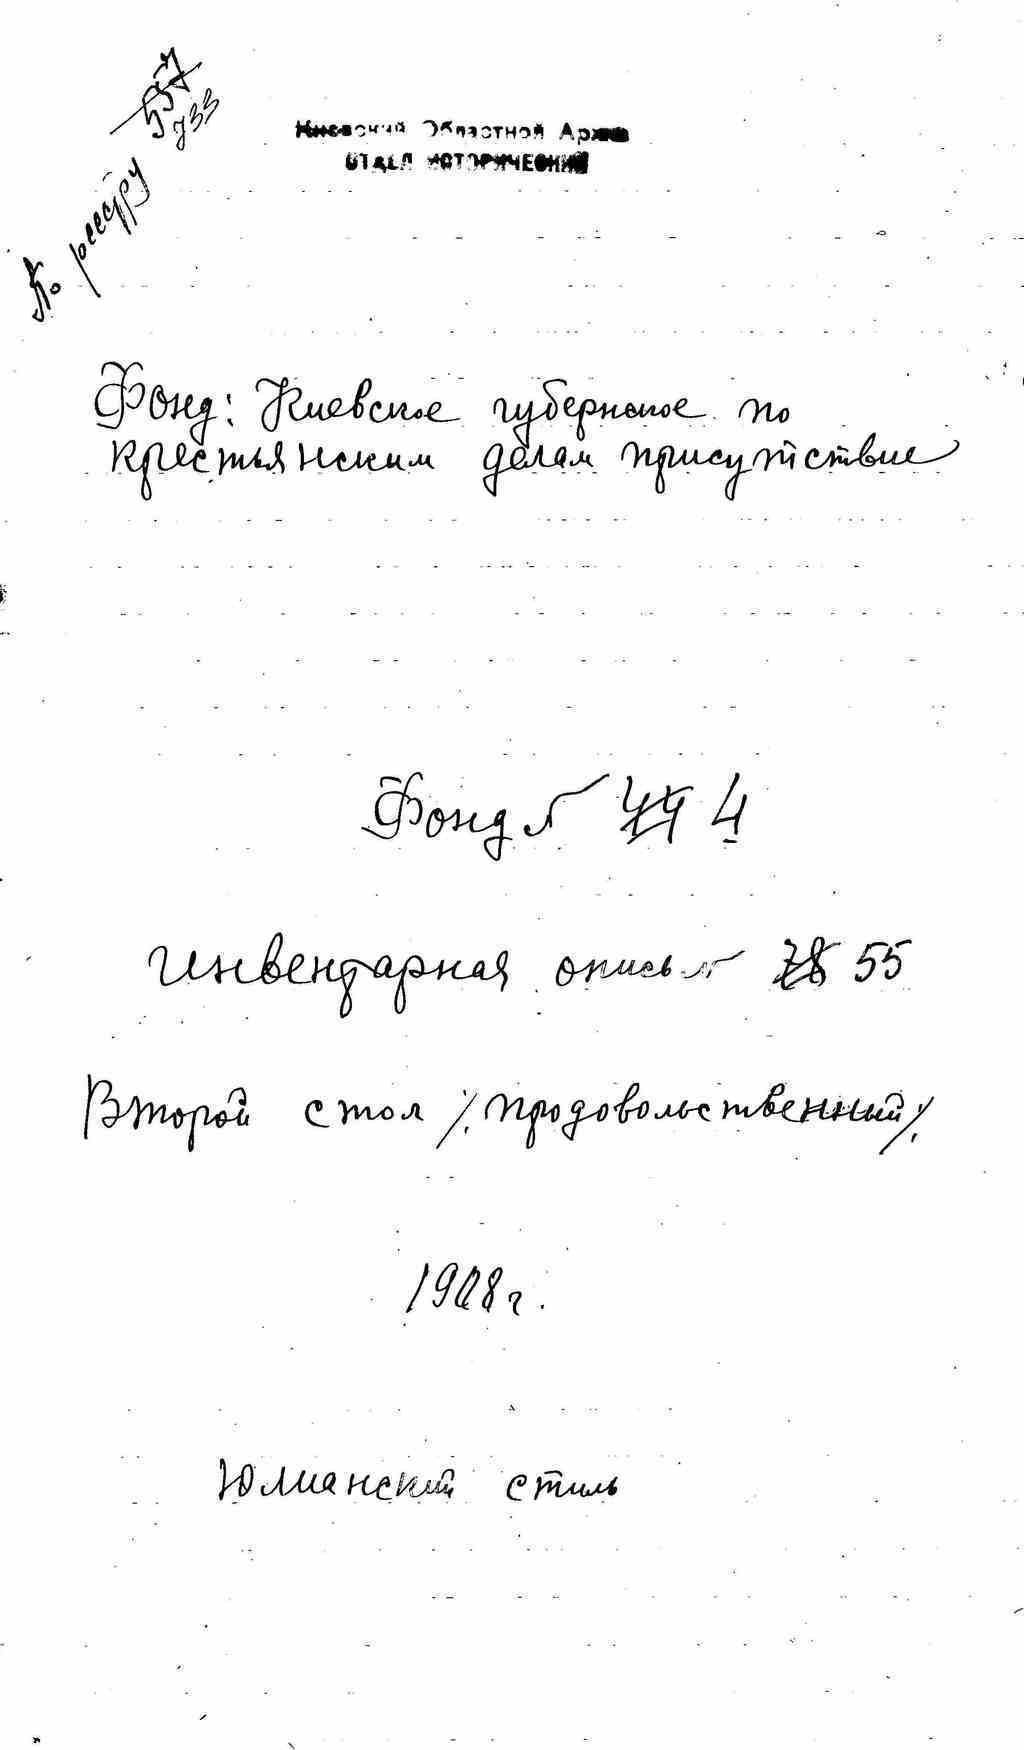 По реестру 557 733
Киевский Областной Архив
ОТДЕЛ ИСТОРИЧЕСКИЙ
Фонд: Киевское губернское по
крестьянским делам присутствие
Фонд № 44 4
Инвентарная опись № 78 55
Второй стол /продовольственный/.
1908 г.
Юлианский стиль